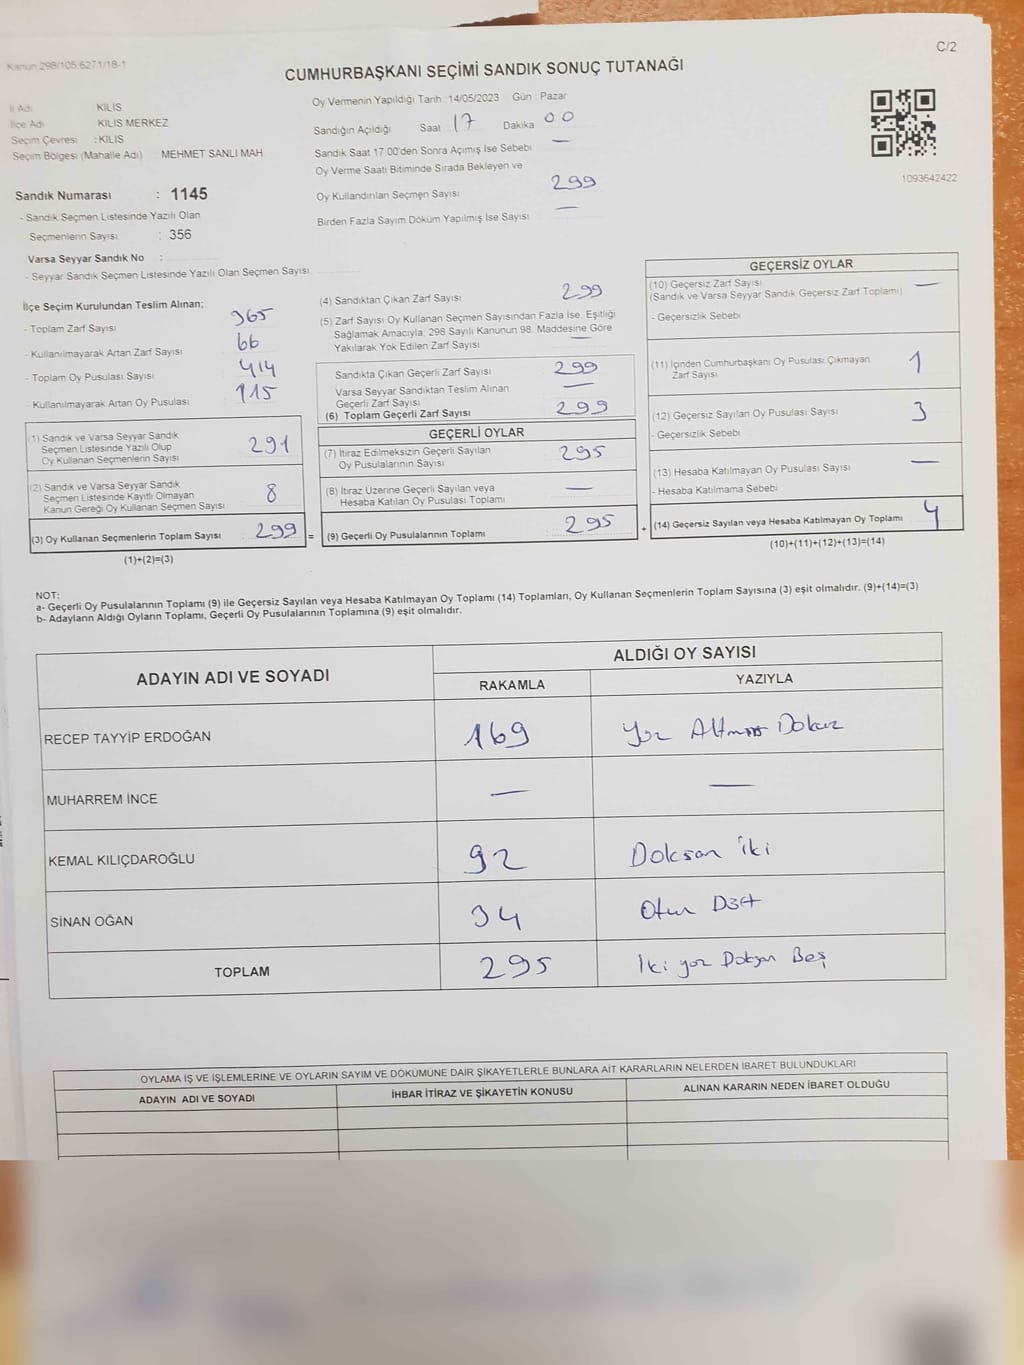 C/2
Kanun 298/105,6271/18-1
CUMHURBAŞKANI SEÇİMİ SANDIK SONUÇ TUTANAĞI
İl Adı : KİLİS
İlçe Adı : KİLİS MERKEZ
Seçim Çevresi : KİLİS
Seçim Bölgesi (Mahalle Adı) : MEHMET SANLI MAH.
Sandık Numarası : 1145
- Sandık Seçmen Listesinde Yazılı Olan
Seçmenlerin Sayısı : 356
Varsa Seyyar Sandık No :
- Seyyar Sandık Seçmen Listesinde Yazılı Olan Seçmen Sayısı
Oy Vermenin Yapıldığı Tarih : 14/05/2023 Gün : Pazar
Sandığın Açıldığı Saat 17 Dakika 00
Sandık Saat 17:00'den Sonra Açımış İse Sebebi —
Oy Verme Saati Bitiminde Sırada Bekleyen ve
Oy Kullandırılan Seçmen Sayısı 299
Birden Fazla Sayım Döküm Yapılmış İse Sayısı —
1093642422
İlçe Seçim Kurulundan Teslim Alınan;
- Toplam Zarf Sayısı 365
- Kullanılmayarak Artan Zarf Sayısı 66
- Toplam Oy Pusulası Sayısı 414
- Kullanılmayarak Artan Oy Pusulası 115
(1) Sandık ve Varsa Seyyar Sandık
Seçmen Listesinde Yazılı Olup
Oy Kullanan Seçmenlerin Sayısı 291
(2) Sandık ve Varsa Seyyar Sandık
Seçmen Listesinde Kayıtlı Olmayan
Kanun Gereği Oy Kullanan Seçmen Sayısı 8
(3) Oy Kullanan Seçmenlerin Toplam Sayısı : 299 =
(1)+(2)=(3)
(4) Sandıktan Çıkan Zarf Sayısı 299
(5) Zarf Sayısı Oy Kullanan Seçmen Sayısından Fazla İse, Eşitliği
Sağlamak Amacıyla, 298 Sayılı Kanunun 98. Maddesine Göre
Yakılarak Yok Edilen Zarf Sayısı —
Sandıkta Çıkan Geçerli Zarf Sayısı 299
Varsa Seyyar Sandıktan Teslim Alınan
Geçerli Zarf Sayısı —
(6) Toplam Geçerli Zarf Sayısı 299
GEÇERLİ OYLAR
(7) İtiraz Edilmeksizin Geçerli Sayılan
Oy Pusulalarının Sayısı 295
(8) İtiraz Üzerine Geçerli Sayılan veya
Hesaba Katılan Oy Pusulası Toplamı —
(9) Geçerli Oy Pusulalarının Toplamı : 295 +
GEÇERSİZ OYLAR
(10) Geçersiz Zarf Sayısı —
(Sandık ve Varsa Seyyar Sandık Geçersiz Zarf Toplamı)
- Geçersizlik Sebebi
(11) İçinden Cumhurbaşkanı Oy Pusulası Çıkmayan
Zarf Sayısı 1
(12) Geçersiz Sayılan Oy Pusulası Sayısı 3
- Geçersizlik Sebebi
(13) Hesaba Katılmayan Oy Pusulası Sayısı —
- Hesaba Katılmama Sebebi
(14) Geçersiz Sayılan veya Hesaba Katılmayan Oy Toplamı 4
(10)+(11)+(12)+(13)=(14)
NOT:
a- Geçerli Oy Pusulalarının Toplamı (9) ile Geçersiz Sayılan veya Hesaba Katılmayan Oy Toplamı (14) Toplamları, Oy Kullanan Seçmenlerin Toplam Sayısına (3) eşit olmalıdır. (9)+(14)=(3)
b- Adayların Aldığı Oyların Toplamı, Geçerli Oy Pusulalarının Toplamına (9) eşit olmalıdır.
ADAYIN ADI VE SOYADI ALDIĞI OY SAYISI
RAKAMLA YAZIYLA
RECEP TAYYİP ERDOĞAN 169 Yüz Altmış Dokuz
MUHARREM İNCE — —
KEMAL KILIÇDAROĞLU 92 Doksan iki
SİNAN OĞAN 34 Otuz Dört
TOPLAM 295 İki yüz Doksan Beş
OYLAMA İŞ VE İŞLEMLERİNE VE OYLARIN SAYIM VE DÖKÜMÜNE DAİR ŞİKAYETLERLE BUNLARA AİT KARARLARIN NELERDEN İBARET BULUNDUKLARI
ADAYIN ADI VE SOYADI İHBAR İTİRAZ VE ŞİKAYETİN KONUSU ALINAN KARARIN NEDEN İBARET OLDUĞU